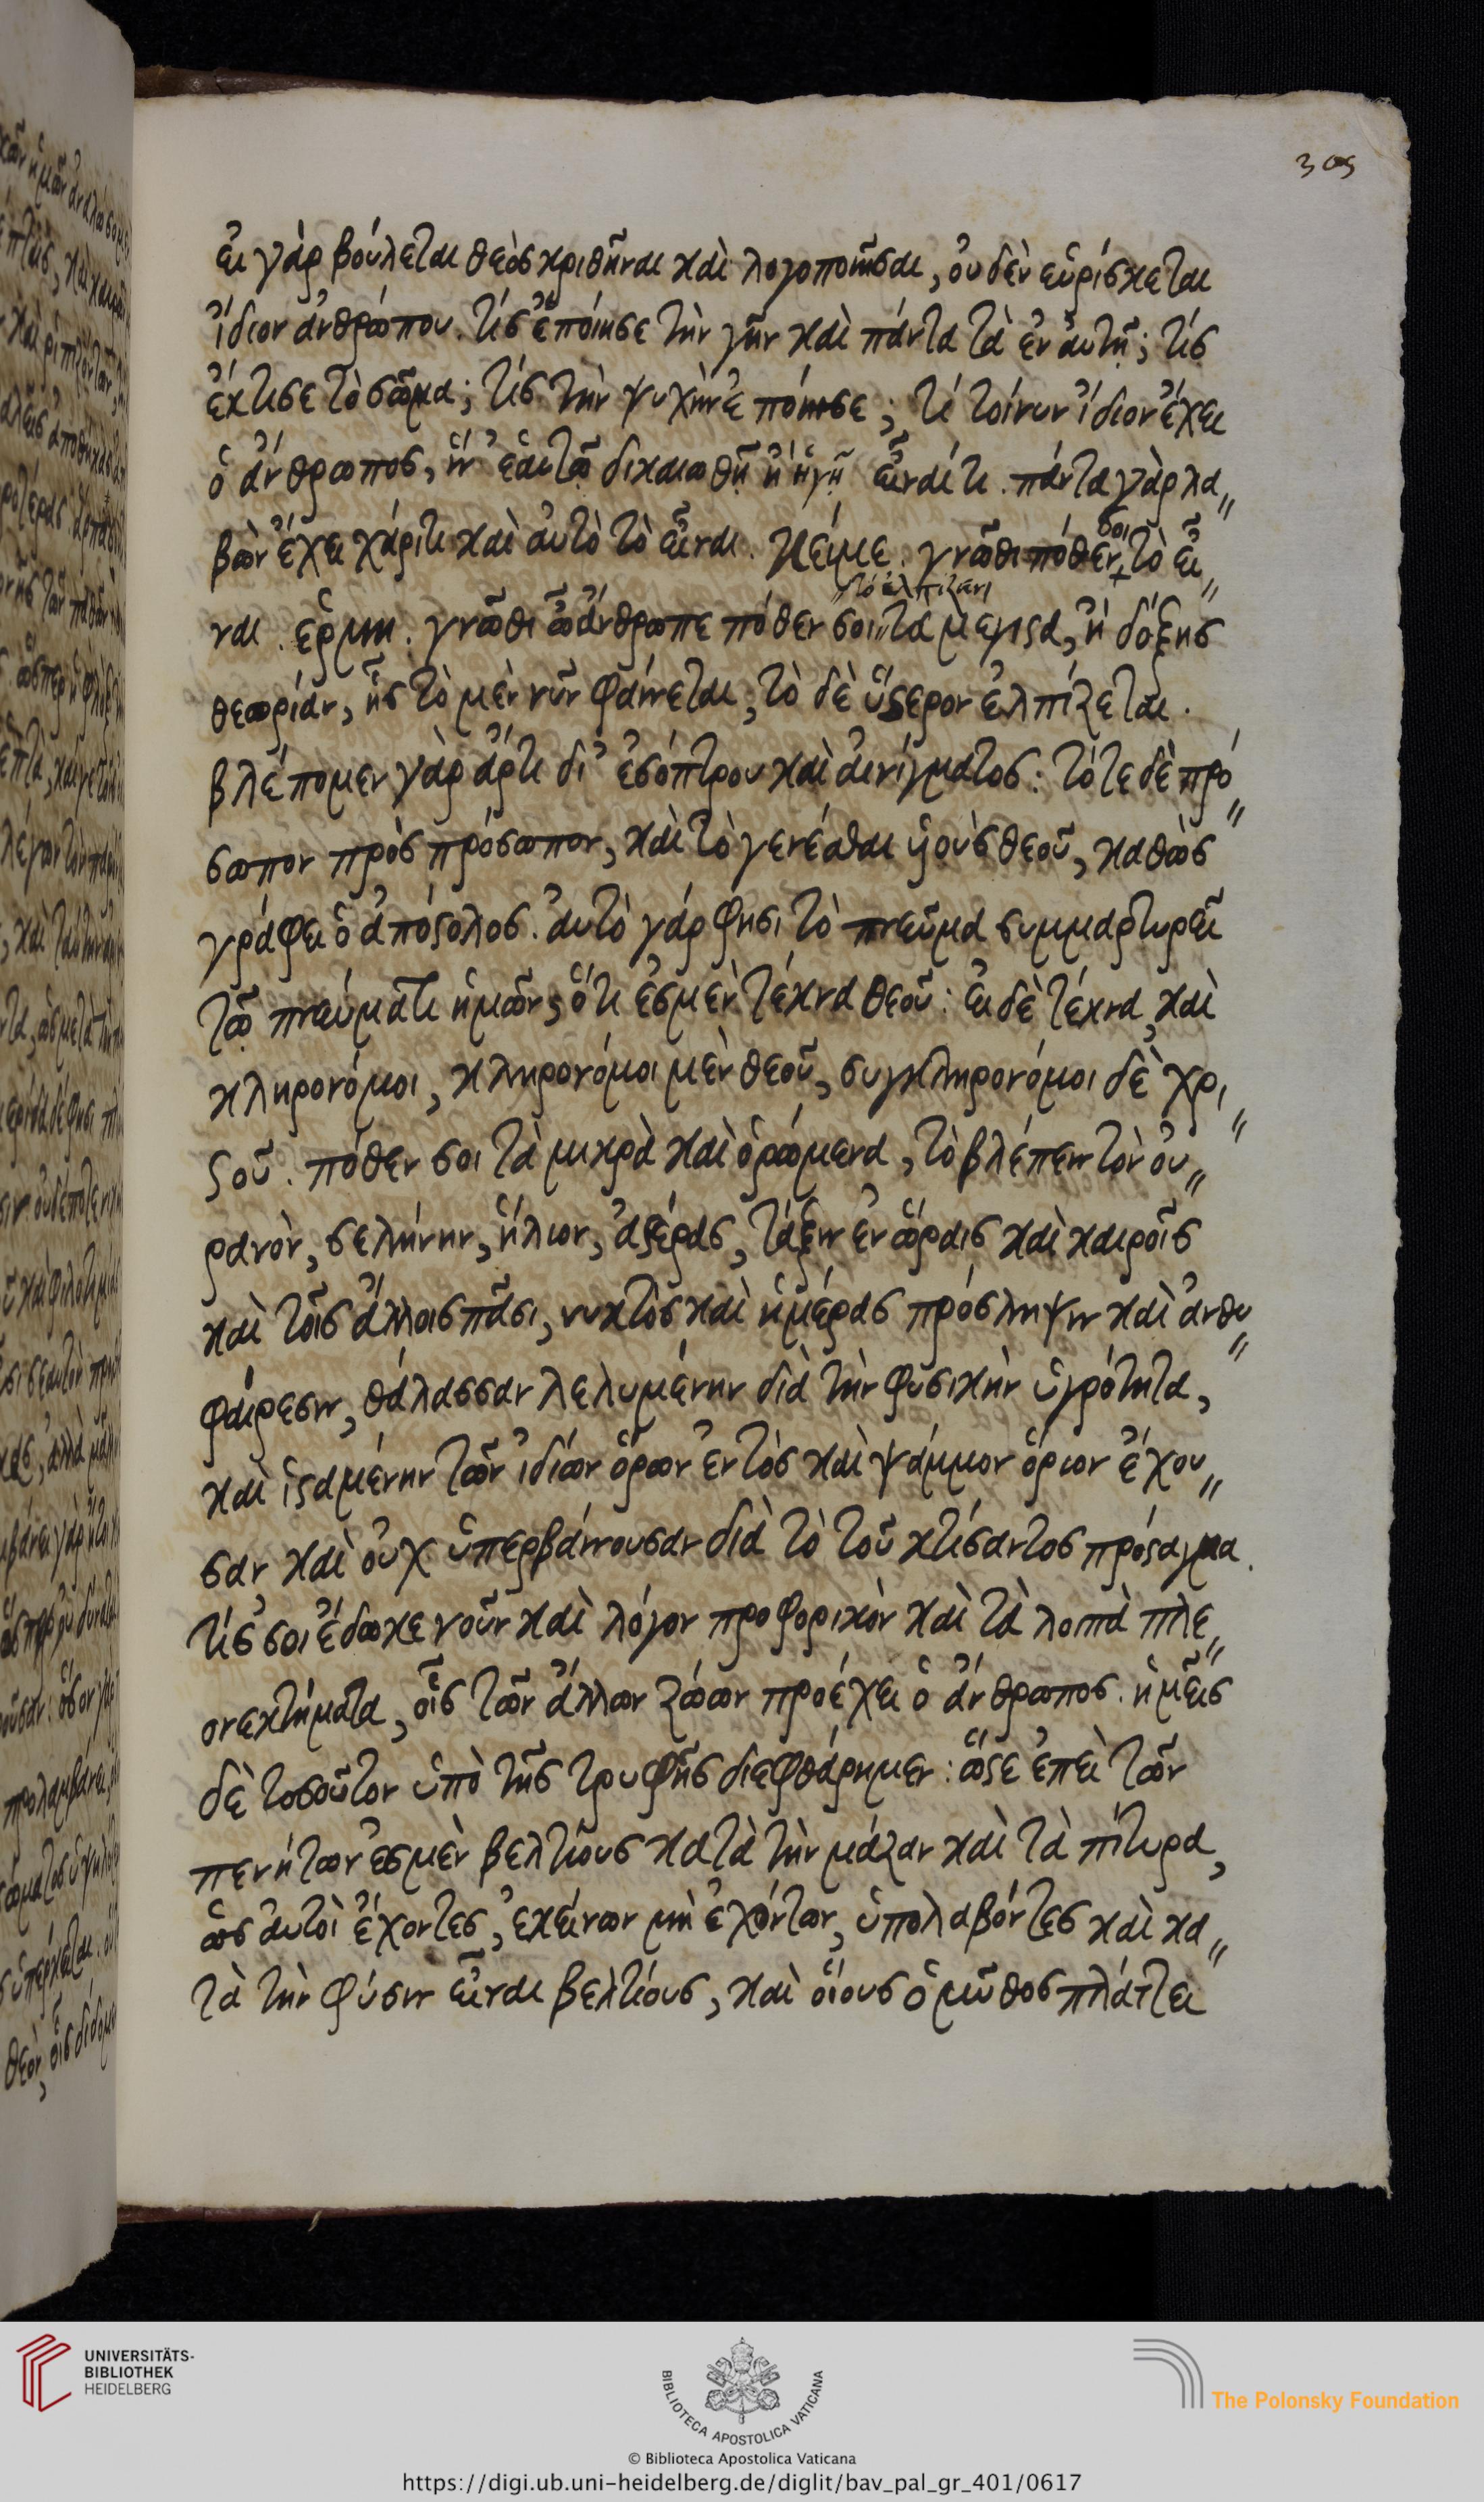 305
εἰ γὰρ βούλεται θεὸς κριθῆναι καὶ λογοποιῆσαι, οὐδὲν εὑρίσκεται
ἴδιον ἀνθρώπου. τίς ἐποίησε τὴν γῆν καὶ πάντα τὰ ἐν αὐτῇ; τίς
ἔκτισε τὸ σῶμα; τίς τὴν ψυχὴν ἐποίησε; τί τοίνυν ἴδιον ἔχει
ὁ ἄνθρωπος, ἵν' ἑαυτῷ δικαιωθῇ ἢ ἡγῇ εἶναί τι. πάντα γὰρ λα〃
βὼν ἔχει χάριτι καὶ αὐτὸ τὸ εἶναι. κείμε. γνῶθι πόθεν
σοι
τὸ εἶ〃
ναι. ἑρμη. γνῶθι ὦ ἄνθρωπε πόθεν σοι
τὸ ἐλπίζειν
τὰ μέγιστα, ἢ δόξης
θεωρίαν, ἧς τὸ μὲν νῦν φαίνεται, τὸ δὲ ὕστερον ἐλπίζεται.
βλέπομεν γὰρ ἄρτι δι' ἐσόπτρου καὶ αἰνίγματος: τότε δὲ πρό〃
σωπον πρὸς πρόσωπον, καὶ τὸ γενέσθαι υἱοὺς θεοῦ, καθὼς
γράφει ὁ ἀπόστολος. αὐτὸ γάρ φησι τὸ πνεῦμα συμμαρτυρεῖ
τῷ πνεύματι ἡμῶν, ὅτι ἐσμὲν τέκνα θεοῦ: εἰ δὲ τέκνα, καὶ
κληρονόμοι, κληρονόμοι μὲν θεοῦ, συγκληρονόμοι δὲ χρι〃
στοῦ. πόθεν σοι τὰ μικρὰ καὶ ὁρώμενα, τὸ βλέπειν τὸν οὐ〃
ρανὸν, σελήνην, ἥλιον, ἀστέρας, τάξιν ἐν ὥραις καὶ καιροῖς
καὶ τοῖς ἄλλοις πᾶσι, νυκτὸς καὶ ἡμέρας πρόσληψιν καὶ ἀνθυ〃
φαίρεσιν, θάλασσαν λελυμένην διὰ τὴν φυσικὴν ὑγρότητα,
καὶ ἱσταμένην τῶν ἰδίων ὅρων ἐντὸς καὶ ψάμμον ὅριον ἔχου〃
σαν καὶ οὐχ ὑπερβαίνουσαν διὰ τὸ τοῦ κτίσαντος πρόσταγμα.
τίς σοι ἔδωκε νοῦν καὶ λόγον προφορικὸν καὶ τὰ λοπὰ πλε〃
ονεκτήματα, οἷς τῶν ἄλλων ζώων προέχει ὁ ἄνθρωπος. ἡμεῖς
δὲ τοσοῦτον ὑπὸ τῆς τρυφῆς διεφθάρημεν: ὥστε ἐπεὶ τῶν
πενήτων ἐσμὲν βελτίους κατὰ τὴν μάζαν καὶ τὰ πίτυρα,
ὡς αὐτοὶ ἔχοντες, ἐκείνων μὴ ἐχόντων, ὑπολαβόντες καὶ κα〃
τὰ τὴν φύσιν εἶναι βελτίους, καὶ οἵους ὁ μῦθος πλάττει
UNIVERSITÄTS-
BIBLIOTHEK
HEIDELBERG
BIBLIOTECA APOSTOLICA VATICANA
The Polonsky Foundation
© Biblioteca Apostolica Vaticana
https://digi.ub.uni-heidelberg.de/diglit/bav_pal_gr_401/0617